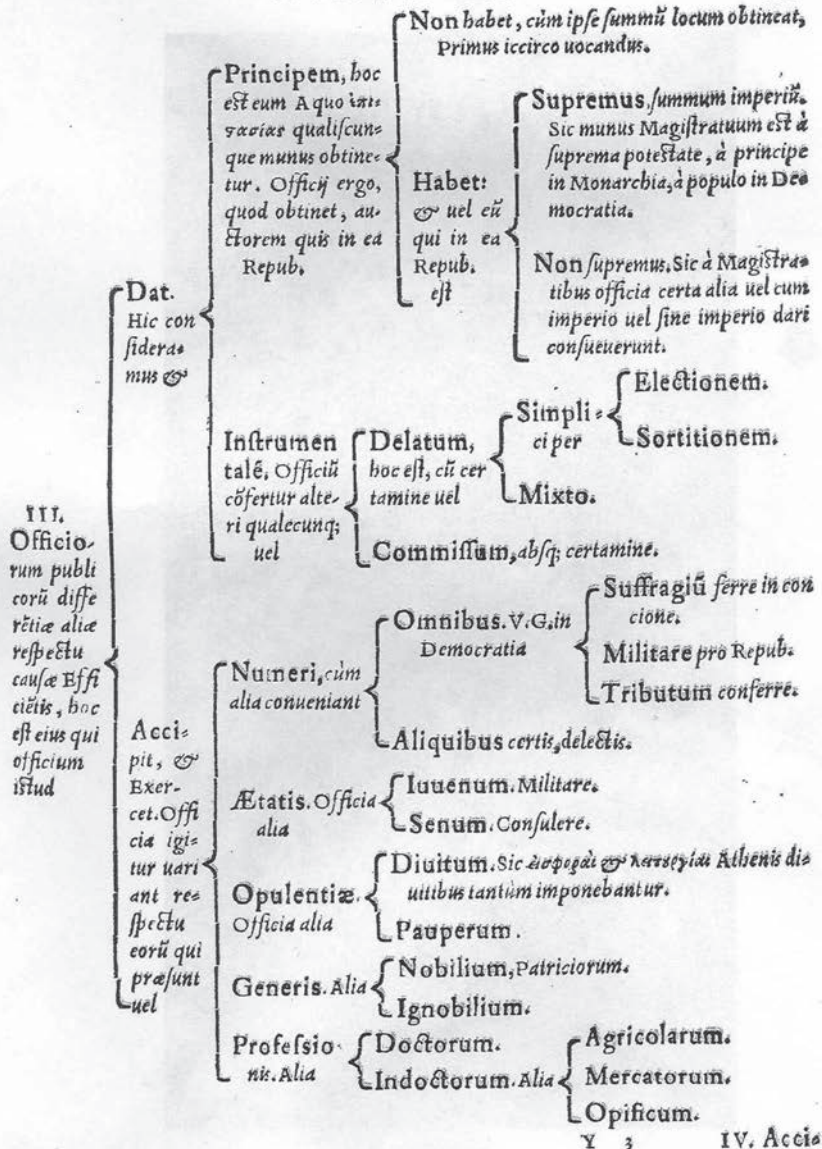 III.
Officio-
rum publi
corũ diffe
rẽtiæ aliæ
respectu
causæ Effi
ciẽtis, hoc
est eius qui
officium
istud
Dat.
Hic con
sidera-
mus &
Principem, hoc
est eum A quo
qualiscun-
que munus obtine-
tur. Officij ergo,
quod obtinet, au-
ctorem quis in ea
Repub.
Non habet, cùm ipse summũ locum obtineat,
Primus iccirco uocandus.
Habet:
& uel eũ
qui in ea
Repub.
est
Supremus, summum imperiũ.
Sic munus Magistratuum est à
suprema potestate, à principe
in Monarchia, à populo in De-
mocratia.
Non supremus. Sic à Magistra-
tibus officia certa alia uel cum
imperio uel sine imperio dari
consueuerunt.
Instrumen
talẽ. Officiũ
cõfertur alte-
ri qualecunq;
uel
Delatum,
hoc est, cũ cer
tamine uel
Simpli-
ci per
Electionem.
Sortitionem.
Mixto.
Commissum, absq; certamine.
Acci-
pit, &
Exer-
cet. Offi
cia igi-
tur uari
ant re-
spectu
eorũ qui
præsunt
uel
Numeri, cùm
alia conueniant
Omnibus. V. G. in
Democratia
Suffragiũ ferre in con
cione.
Militare pro Repub.
Tributum conferre.
Aliquibus certis, delectis.
Ætatis. Officia
alia
Iuuenum. Militare.
Senum. Consulere.
Opulentiæ.
Officia alia
Diuitum. Sic & Athenis di-
uitibus tantùm imponebantur.
Pauperum.
Generis. Alia
Nobilium, Patriciorum.
Ignobilium.
Professio-
nis. Alia
Doctorum.
Indoctorum. Alia
Agricolarum.
Mercatorum.
Opificum.
Y 3 IV. Acci-